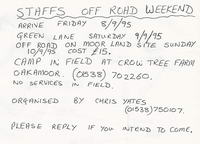 STAFFS OFF ROAD WEEKEND
ARRIVE FRIDAY 8/9/95
GREEN LANE SATURDAY 9/9/95
OFF ROAD ON MOOR LAND SITE SUNDAY
10/9/95 COST £15.
CAMP IN FIELD AT CROW TREE FARM
OAKAMOOR. (01538) 702260.
NO SERVICES IN FIELD.
ORGANISED BY CHRIS YATES
(01538) 750107.
PLEASE REPLY IF YOU INTEND TO COME.